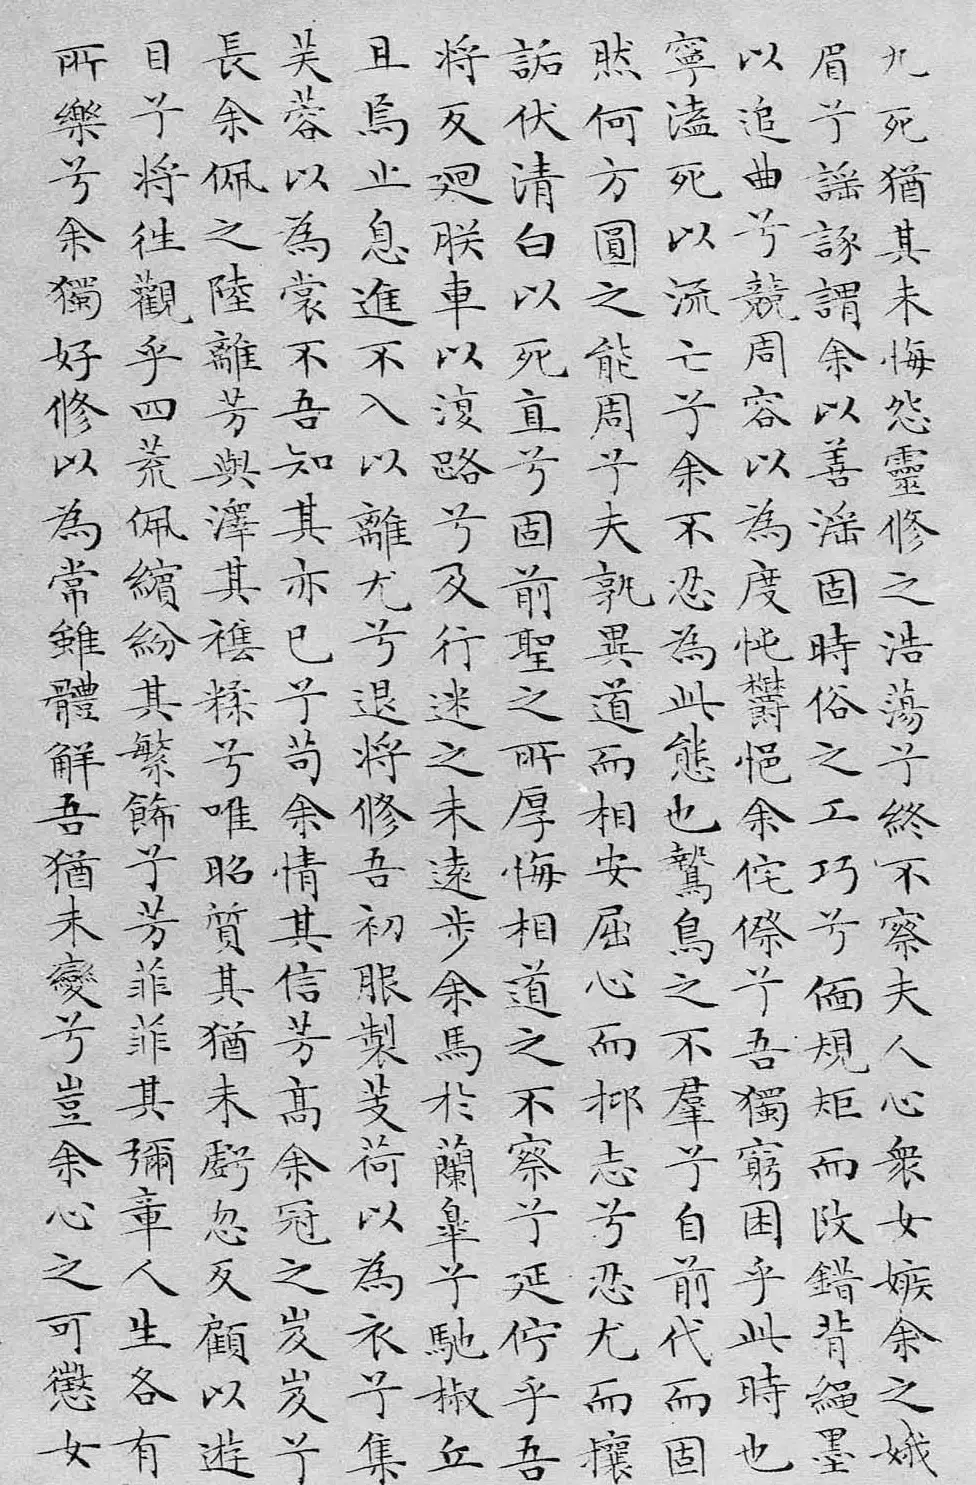 九死猶其未悔怨靈修之浩蕩兮終不察夫人心衆女嫉余之娥
眉兮謡諑謂余以善淫固時俗之工巧兮偭規矩而改錯背繩墨
以追曲兮競周容以為度忳欝悒余侘傺兮吾獨窮困乎此時也
寧溘死以流亡兮余不忍為此態也鷙鳥之不羣兮自前代而固
然何方圓之能周兮夫孰異道而相安屈心而抑志兮忍尤而攘
詬伏清白以死直兮固前聖之所厚悔相道之不察兮延佇乎吾
將反廻朕車以復路兮及行迷之未遠步余馬於蘭臯兮馳椒丘
且焉止息進不入以離尤兮退將修吾初服製芰荷以為衣兮集
芙蓉以為裳不吾知其亦已兮苟余情其信芳高余冠之岌岌兮
長余佩之陸離芳與澤其襍糅兮唯昭質其猶未虧忽反顧以遊
目兮將往觀乎四荒佩繽紛其繁飾兮芳菲菲其彌章人生各有
所樂兮余獨好修以為常雖體解吾猶未變兮豈余心之可懲女